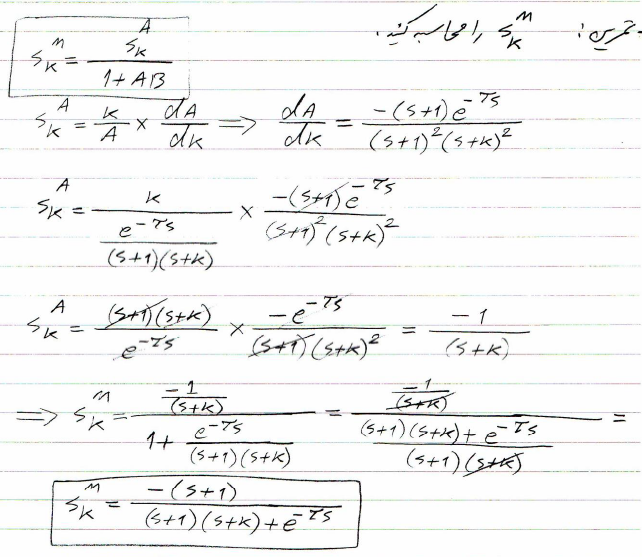 تمرین: S_k^m را محاسبه کنید.
S_k^m = S_k^A / (1 + AB)
S_k^A = k/A × dA/dk ⟹ dA/dk = -(s+1)e^{-τs} / ((s+1)^2 (s+k)^2)
S_k^A = k / (e^{-τs} / ((s+1)(s+k))) × -(s+1)e^{-τs} / ((s+1)^2 (s+k)^2)
S_k^A = (s+1)(s+k) / e^{-τs} × -e^{-τs} / ((s+1)(s+k)^2) = -1 / (s+k)
⟹ S_k^m = (-1/(s+k)) / (1 + e^{-τs} / ((s+1)(s+k))) = (-1/(s+k)) / (((s+1)(s+k) + e^{-τs}) / ((s+1)(s+k))) =
S_k^m = -(s+1) / ((s+1)(s+k) + e^{-τs})